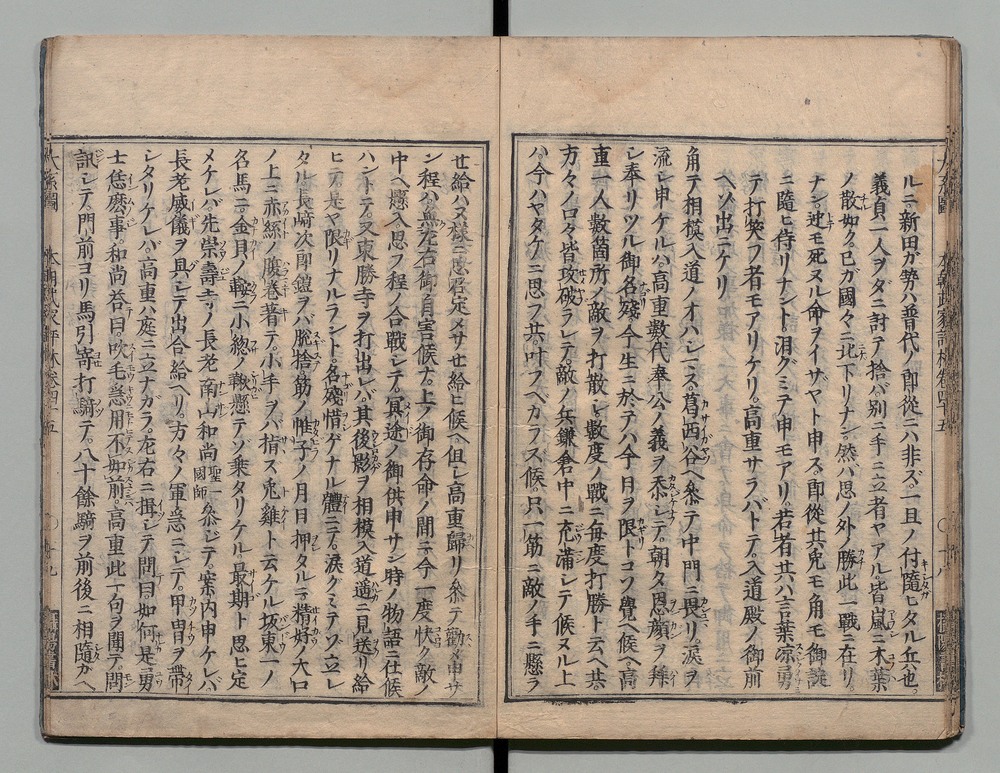 ルニ新田ガ勢ハ普代ノ郎從ニハ非ズ一旦ノ付隨ヒタル兵也
義貞一人ヲダニ討テ捨バ別ニ手ニ立者ヤアル皆嵐ニ木ノ葉
ノ散如ク己ガ國々ニ北下リナン然ハ思ノ外ノ勝此一戰ニ在リ
ナシ迚モ死ヌル命ヲイサヤト申ス郎從共兎モ角モ御諚
ニ隨ヒ侍リナント泪グミテ申モアリ若者共ハ言葉凉勇
テ打笑フ者モアリケリ高重サラバトテ入道殿ノ御前
ヘゾ出ニケリ
角テ相模入道ノオハシマス葛西谷ヘ參テ中門ニ畏リ涙ヲ
流シ申ケルハ高重數代奉公ノ義ヲ忝シテ朝夕恩顔ヲ拜
シ奉リツル御名殘今生ニ於テハ今日ヲ限トコソ覺候ヘ高
重一人數箇所ノ敵ヲ打散シ數度ノ戰ニ毎度打勝ト云ヘ共
方々ノ口々皆攻破ラレテ敵ノ兵鎌倉中ニ充滿シテ候ヌル上
ハ今ハヤタケニ思フ共叶フベカラス候只一筋ニ敵ノ手ニ懸ラ
セ給ハヌ樣ニ思召定メサセ給ヒ候ヘ但シ高重歸リ參テ勸メ申サ
ン程ハ無左右御自害候ナ上ノ御存命ノ間ニ今一度快ク敵ノ
中ヘ懸入思フ程ノ合戰シテ冥途ノ御供申サン時ノ物語ニ仕候
ハントテ又東勝寺ヲ打出レバ其後影ヲ相模入道遙ニ見送リ給
ヒテ是ヤ限リナルラント名殘惜ゲナル體ニテ涙グミテゾ立レ
タル長崎次郎鎧ヲバ脱捨筋ノ帷子ノ月日押タルニ精好ノ大口
ノ上ニ赤絲ノ腹卷著テ小手ヲバ指ズ兎雞ト云ケル坂東一ノ
名馬ニ金貝ノ鞍ニ小總ノ鞦懸テゾ乘タリケル最期ト思ヒ定
メケレバ先崇壽寺ノ長老南山和尚聖一國師ニ參ジテ案内申ケレバ
長老威儀ヲ具シテ出合給ヘリ方々ノ軍急ニシテ甲冑ヲ帶
シタリケレバ高重ハ庭ニ立ナガラ左右ニ揖シテ問曰如何是勇
士恁麼事和尚答曰吹毛急用不如前高重此一句ヲ聞テ問
訊シテ門前ヨリ馬引寄打騎テ八十餘騎ヲ前後ニ相隨カヘ